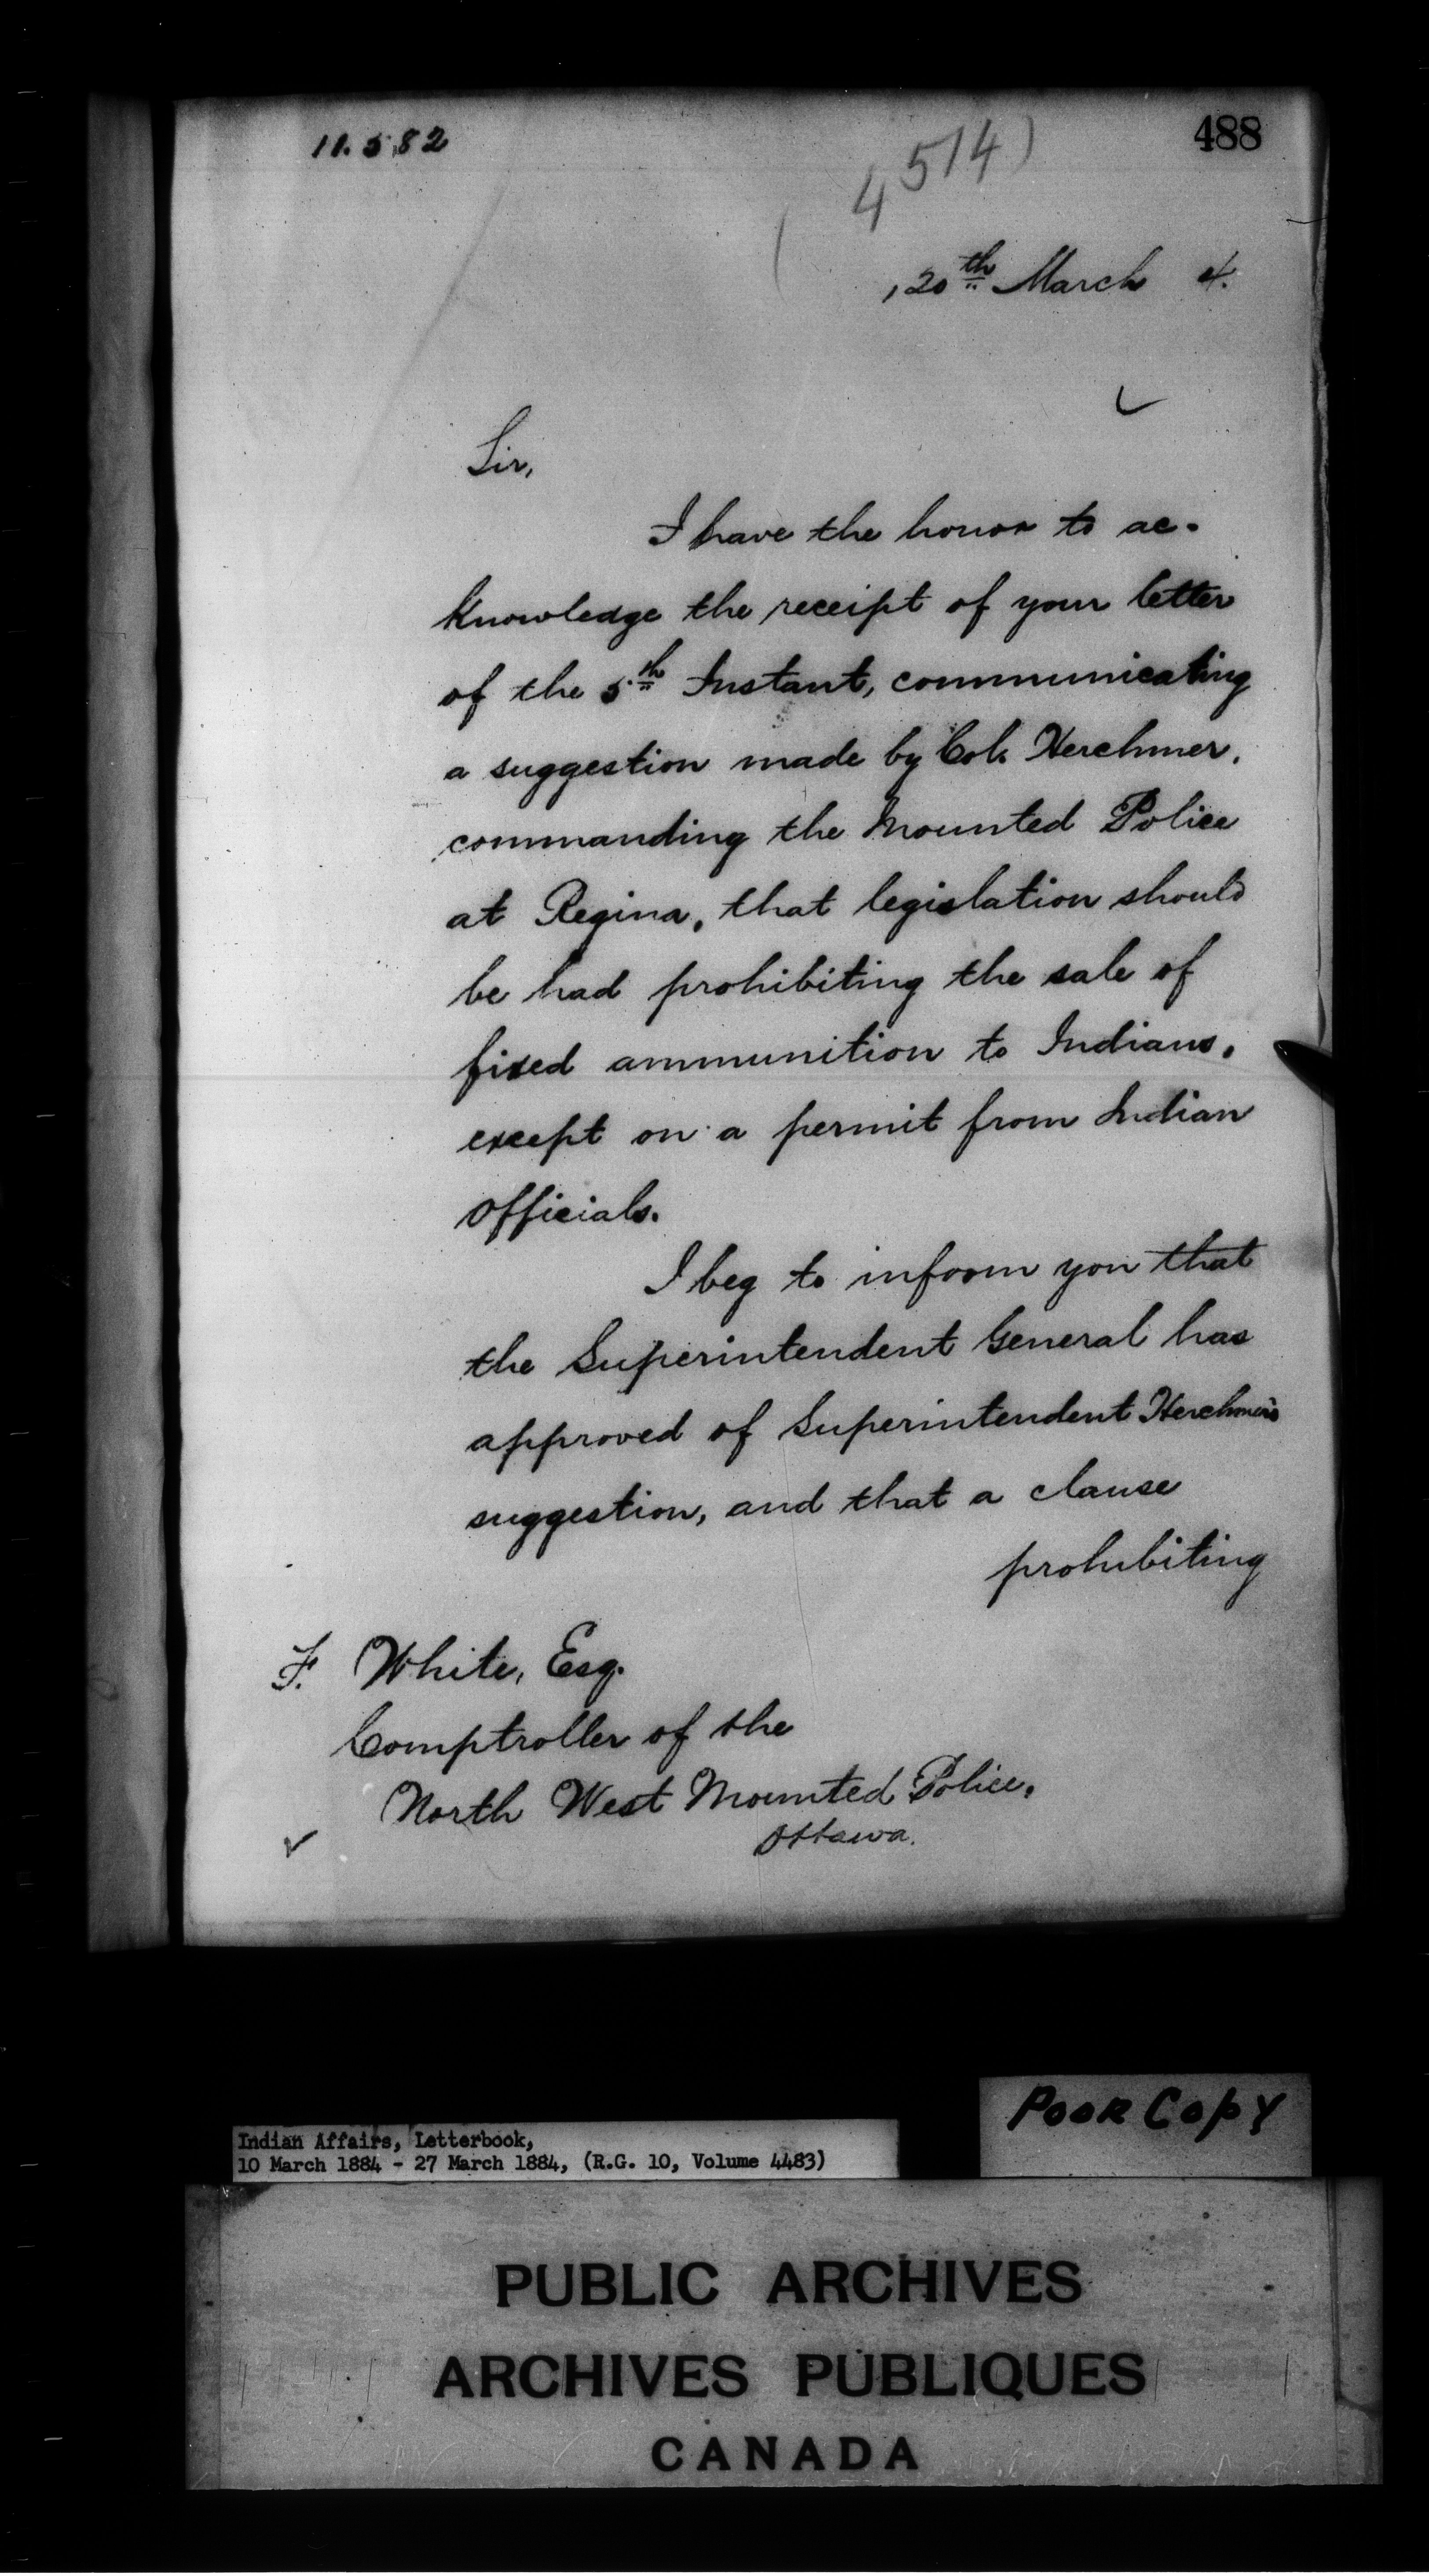 11.582
488
(4514)
, 20th March 4.
Sir,
I have the honor to ac-
knowledge the receipt of your letter
of the 5th Instant, communicating
a suggestion made by Col. Herchmer,
commanding the Mounted Police
at Regina, that legislation should
be had prohibiting the sale of
fixed ammunition to Indians,
except on a permit from Indian
Officials.
I beg to inform you that
the Superintendent General has
approved of Superintendent Herchmer's
suggestion, and that a clause
prohibiting
F. White, Esq.
Comptroller of the
North West Mounted Police,
Ottawa.
POOR COPY
Indian Affairs, Letterbook,
10 March 1884 - 27 March 1884, (R.G. 10, Volume 4483)
PUBLIC ARCHIVES
ARCHIVES PUBLIQUES
CANADA